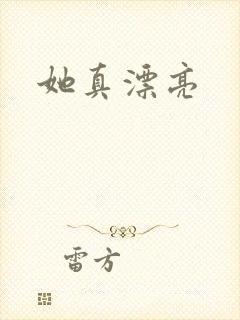 她真漂亮
雷方